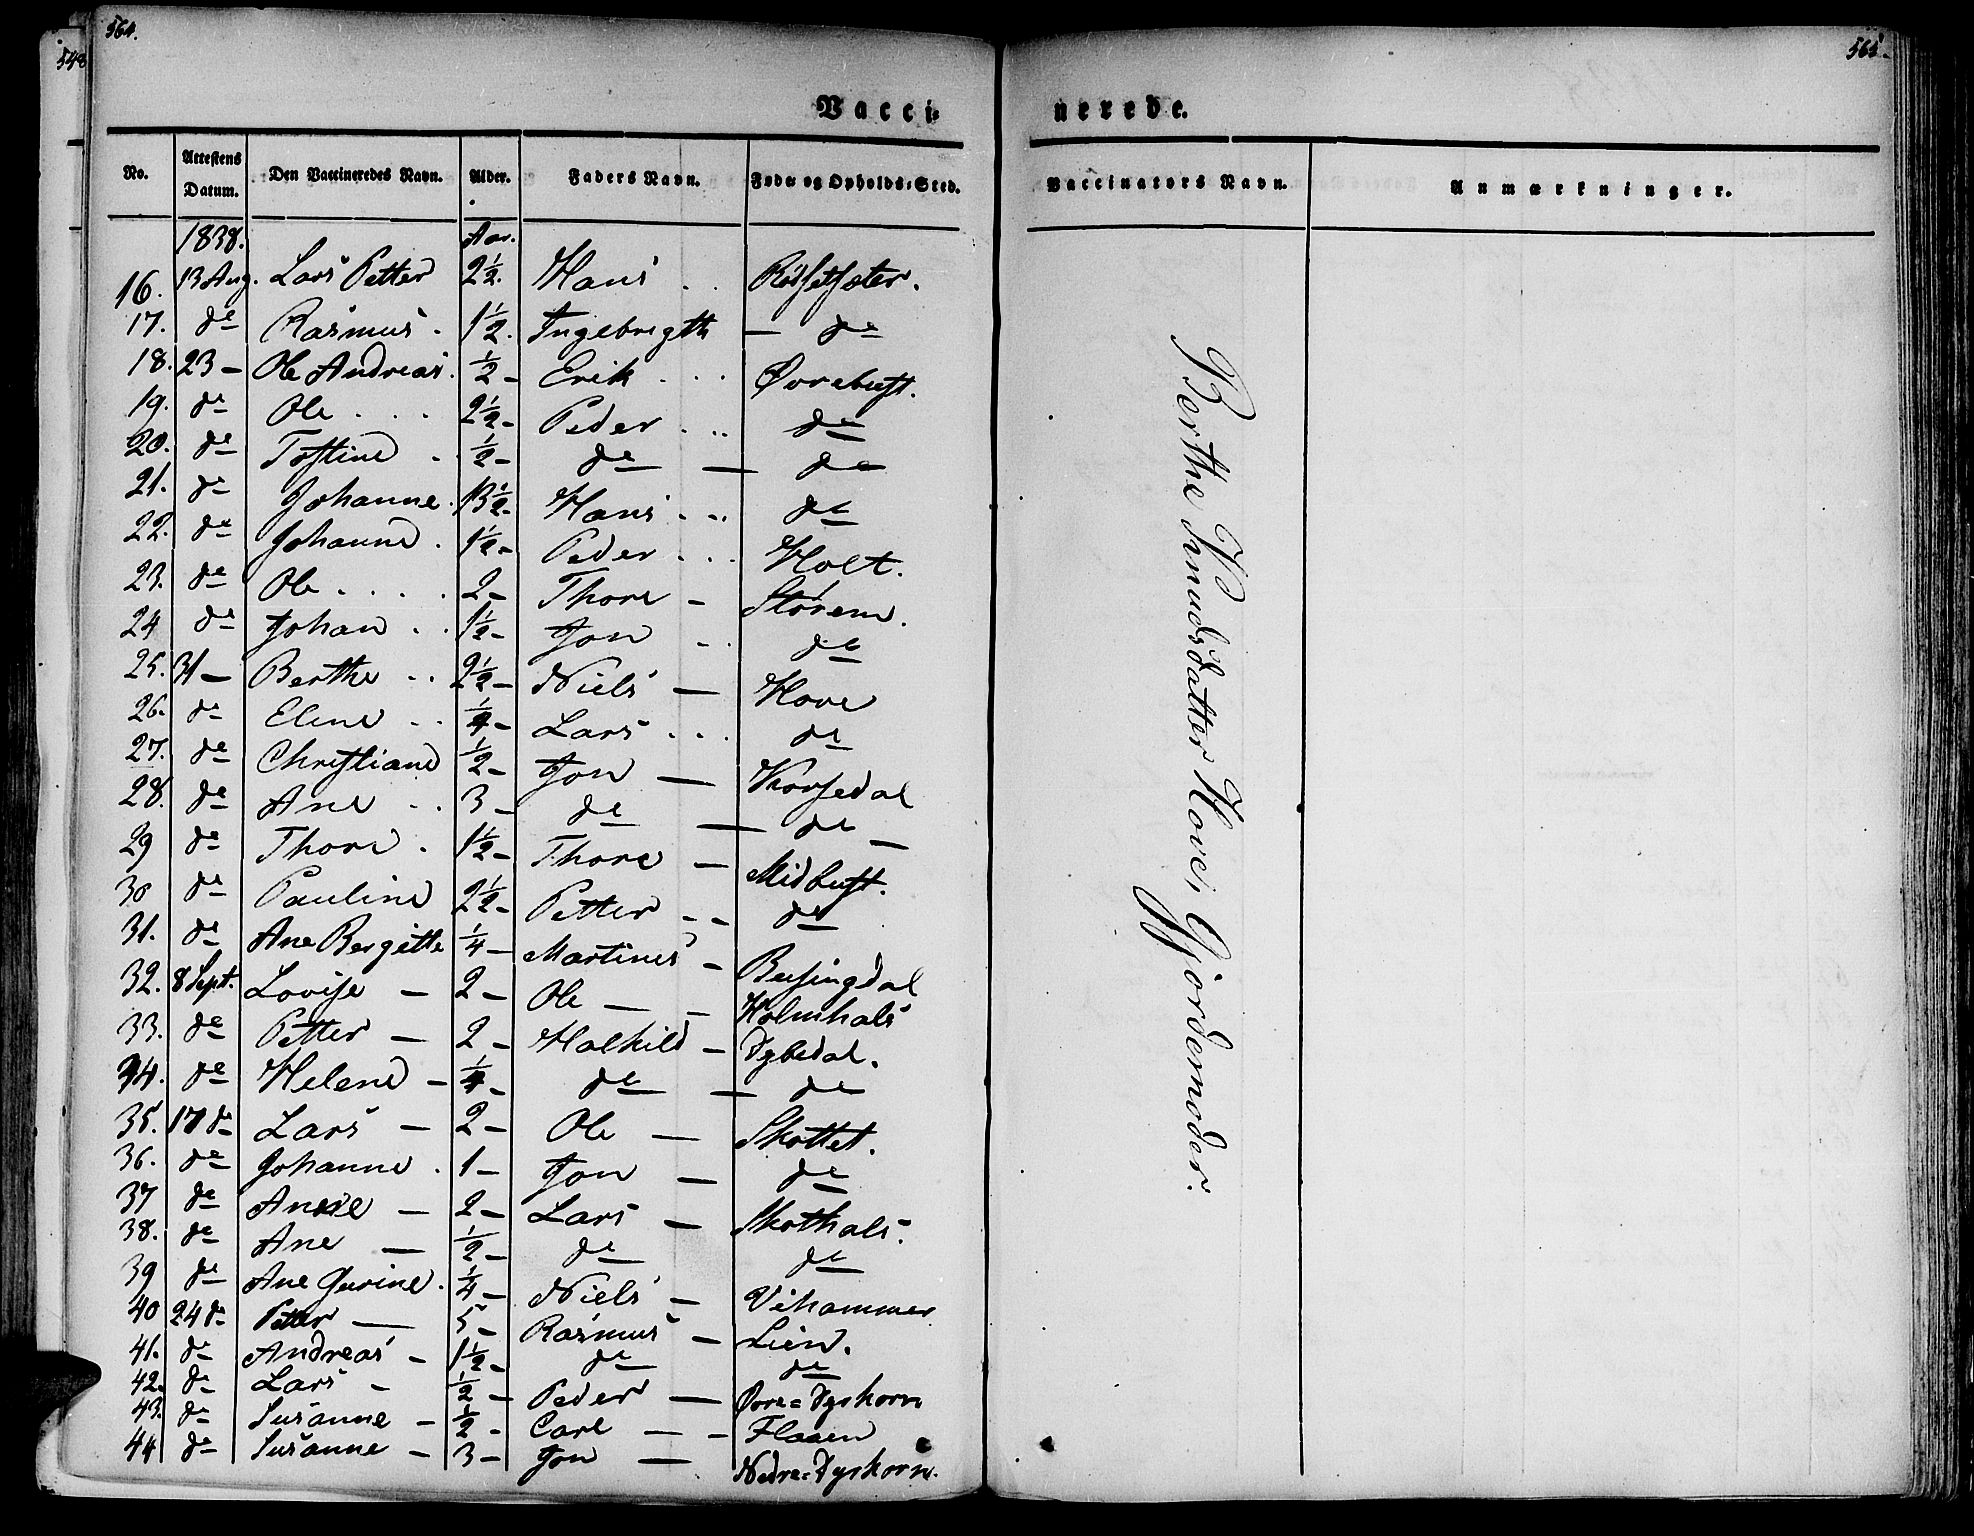 564.
565.
548
Vacci=
nerede.
No. Attestens Datum. Den Vaccineredes Navn. Alder. Faders Navn. Føde= og Opholds=Sted.
Vaccinators Navn. Anmærkninger.
1838. Aar.
16. 13 Aug. Lars Petter 2½. Hans . . Rødsetsæter.
17. de Rasmus . 1½. Ingebrigth — de
18. 23 — Ole Andreas . ½ — Erik . . . Øvrebust.
19. de Ole . . . 2½ — Peder . . . de
20. de Tostine . ½ — de — de
21. de Johanne . 13½ — Hans . . . de
22. de Johanne . 1½ — Peder . . . Holt.
23. de Ole . . . . 2 — Thore — Storem.
24 de Johan . . 1½ — Jon . . de
25. 31 — Berthe . . 2½ — Niels — Hove
26. de Elene . . ¼ — Lars . . . de
27. de Christiane ½ — Jon — Korsedal
28. de Ane . . 3 — de — de —
29 de Thore . 1½ — Thore — Midbust.
30 de Pauline 2½ — Petter — — de
31. de Ane Bergitte ¼ — Martines — Bersingdal
32. 8 Sept. Lovise — 2 — Ole — — Holmhals
33. de Petter — 2 — Halkild — Dybedal.
34. de Helene — ¼ — de — de
35. 17 de Lars — 2 — Ole — Skottet.
36. de Johanne . 1 — Jon — de
37 de — 2 — Lars — Skothals.
38. de Ane — ½ — de de
39 de Ane Gurine . ¼ — Niels — Vihammer
40 24 de Petter — 5 — Rasmus — Lien.
41. de Andreas — 1½ — de de
42. de Lars — ½ — Peder — Øvre=Dyrkorn
43. de Susanne — ½ — Carl — — Flaaen
44 de Susanne — 3 — Jon — Nedre=Dyrkorn.
Berthe Knudsdatter Hove, Gjordemoder.